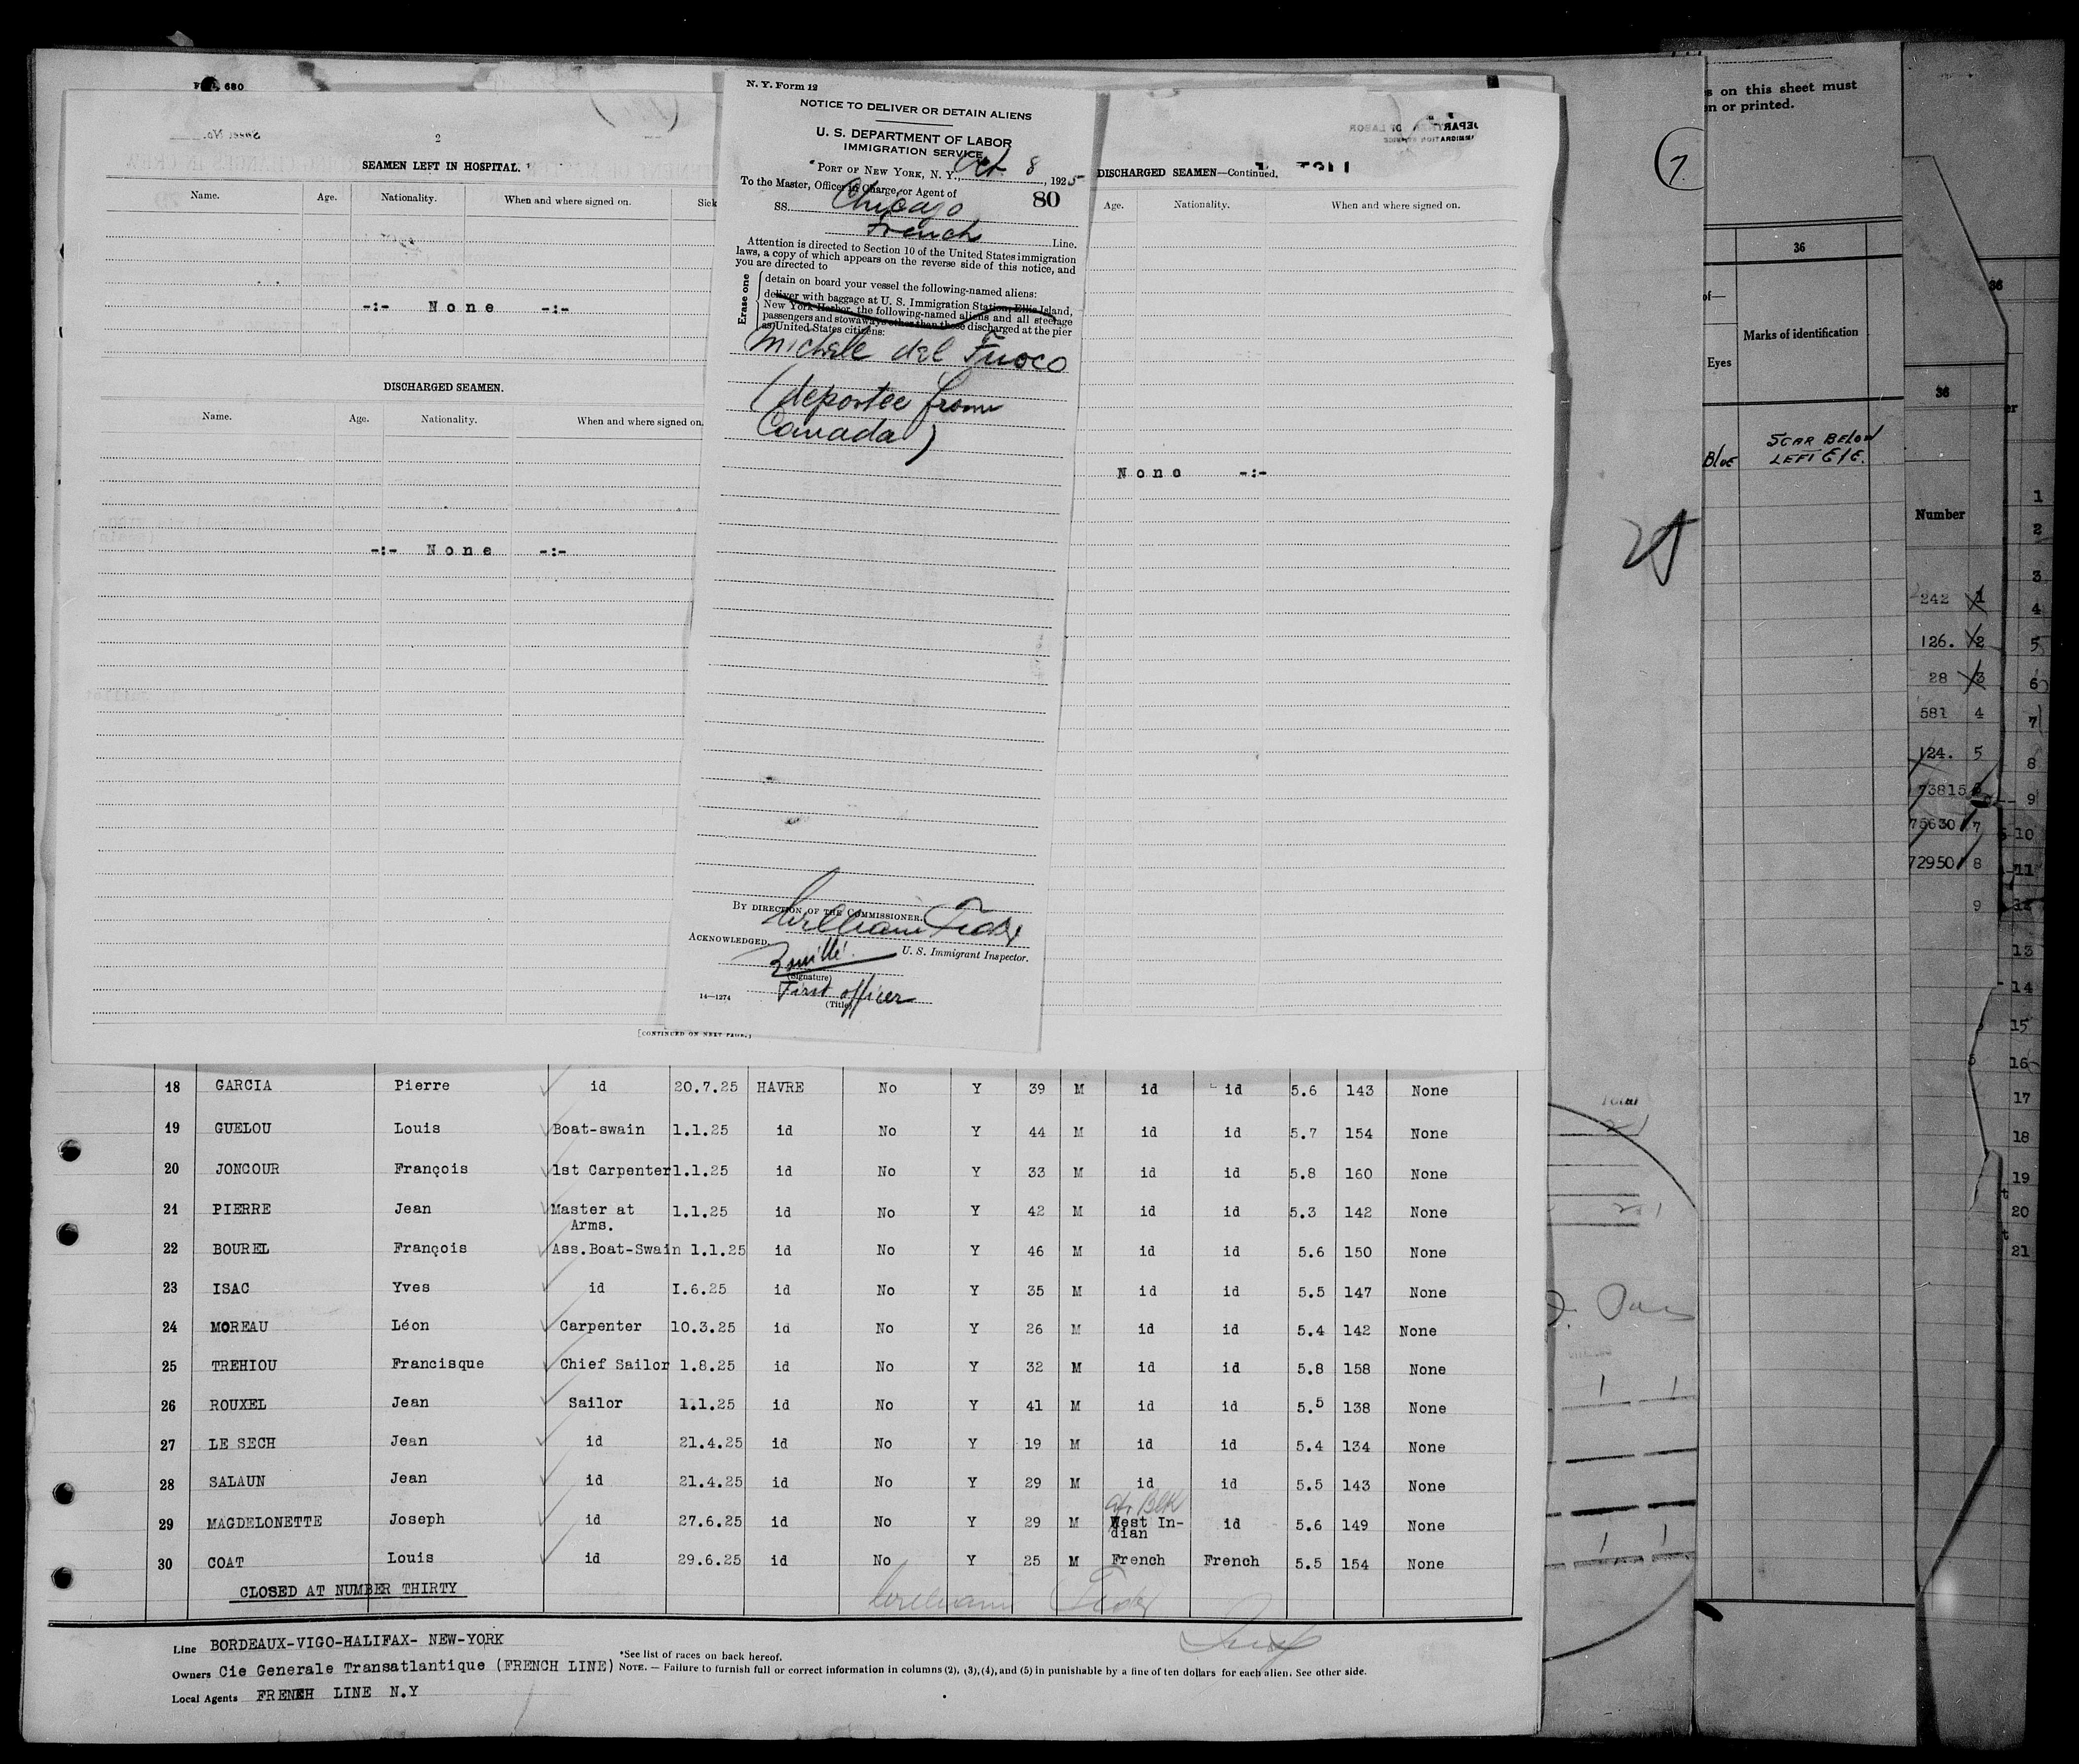 2
SEAMEN LEFT IN HOSPITAL.
Name. Age. Nationality. When and where signed on. Sick
-:- None -:-
DISCHARGED SEAMEN.
Name. Age. Nationality. When and where signed on.
-:- None -:-
[CONTINUED ON NEXT PAGE.]
N. Y. Form 12
NOTICE TO DELIVER OR DETAIN ALIENS
U. S. DEPARTMENT OF LABOR
IMMIGRATION SERVICE
PORT OF NEW YORK, N. Y., Oct 8, 1925
To the Master, Officer in Charge, or Agent of
SS. Chicago 80
French Line.
Attention is directed to Section 10 of the United States immigration
laws, a copy of which appears on the reverse side of this notice, and
you are directed to
Erase one
detain on board your vessel the following-named aliens:
deliver with baggage at U. S. Immigration Station, Ellis Island,
New York Harbor, the following-named aliens and all steerage
passengers and stowaways other than those discharged at the pier
as United States citizens:
Michele del Fuoco
(deportee from
Canada)
BY DIRECTION OF THE COMMISSIONER.
William
U. S. Immigrant Inspector.
ACKNOWLEDGED,
(Signature)
First officer
(Title)
14—1274
DISCHARGED SEAMEN—Continued.
Age. Nationality. When and where signed on.
None -:-
18 GARCIA Pierre id 20.7.25 HAVRE No Y 39 M id id 5.6 143 None
19 GUELOU Louis Boat-swain 1.1.25 id No Y 44 M id id 5.7 154 None
20 JONCOUR François 1st Carpenter 1.1.25 id No Y 33 M id id 5.8 160 None
21 PIERRE Jean Master at Arms. 1.1.25 id No Y 42 M id id 5.3 142 None
22 BOUREL François Ass.Boat-Swain 1.1.25 id No Y 46 M id id 5.6 150 None
23 ISAC Yves id I.6.25 id No Y 35 M id id 5.5 147 None
24 MOREAU Léon Carpenter 10.3.25 id No Y 26 M id id 5.4 142 None
25 TREHIOU Francisque Chief Sailor 1.8.25 id No Y 32 M id id 5.8 158 None
26 ROUXEL Jean Sailor 1.1.25 id No Y 41 M id id 5.5 138 None
27 LE SECH Jean id 21.4.25 id No Y 19 M id id 5.4 134 None
28 SALAUN Jean id 21.4.25 id No Y 29 M id id 5.5 143 None
29 MAGDELONETTE Joseph id 27.6.25 id No Y 29 M Af. Blk West In-dian id 5.6 149 None
30 COAT Louis id 29.6.25 id No Y 25 M French French 5.5 154 None
CLOSED AT NUMBER THIRTY
William
Line BORDEAUX-VIGO-HALIFAX- NEW-YORK
*See list of races on back hereof.
Owners Cie Generale Transatlantique (FRENCH LINE)
NOTE. — Failure to furnish full or correct information in columns (2), (3), (4), and (5) in punishable by a fine of ten dollars for each alien. See other side.
Local Agents FRENCH LINE N.Y
7
s on this sheet must
n or printed.
36
of—
Eyes Marks of identification
Blue SCAR BELOW
LEFT EYE.
36
36
Number
242 1
126. 2
28 3
581 4
124. 5
73815
75630 7
72950 8
9
1
2
3
4
5
6
7
8
9
10
11
12
13
14
15
16
17
18
19
20
21